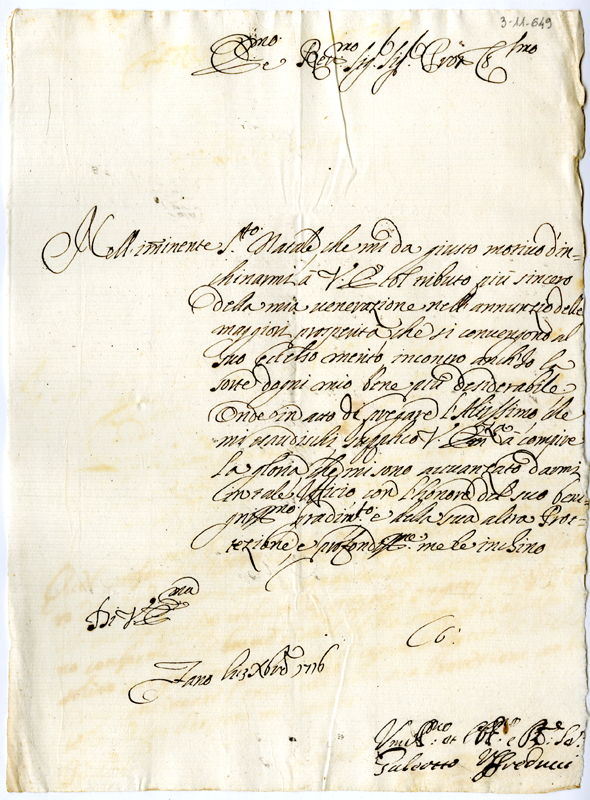 3-11-649
E.mo e Rev.mo Sig.r Sig.r Pron Col.mo
Nell'iminente S.to Natale che mi da giusto motivo d'in-
chinarmi à V. E. col tributo più sincero
della mia venerazione nell'annunzio delle
maggiori prosperità che si convengono al
suo eccelso merito incontro anch'Io la
sorte d'ogni mio bene più desiderabile
Onde in atto di pregare l'Altissimo che
mi esaudischi supplico V. Em.za à compire
la gloria che mi sono avvanzato darmi
in tale Ufficio con l'honore del suo beni-
gniss.mo gradim.to e della sua alta Prot-
tezione, e profondiss.me me le inchino
Di V. E.ma
Fano li 13 Xbre 1716
Umil.mo et e Se.
Galeotto Uffreducci